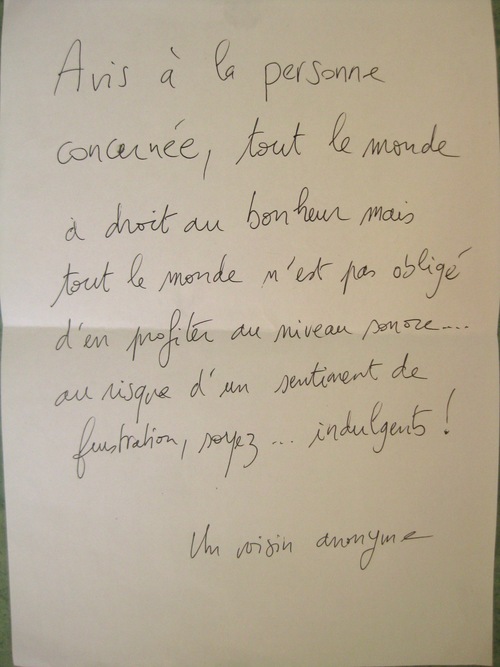 Avis à la personne
concernée, tout le monde
à droit au bonheur mais
tout le monde n'est pas obligé
d'en profiter au niveau sonore....
au risque d'un sentiment de
frustration, soyez ... indulgents !
Un voisin anonyme